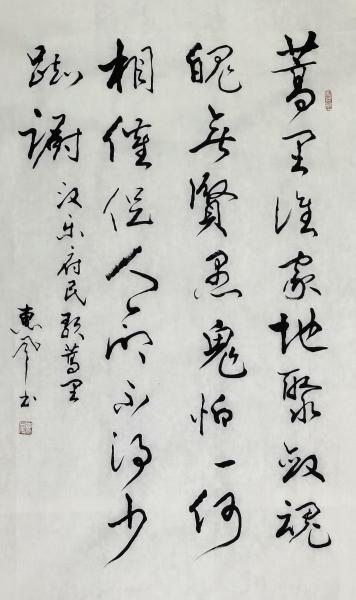 蒿里谁家地聚敛魂
魄无贤愚鬼怕一何
相催促人命不得少
踟蹰
汉乐府民歌蒿里
惠风书